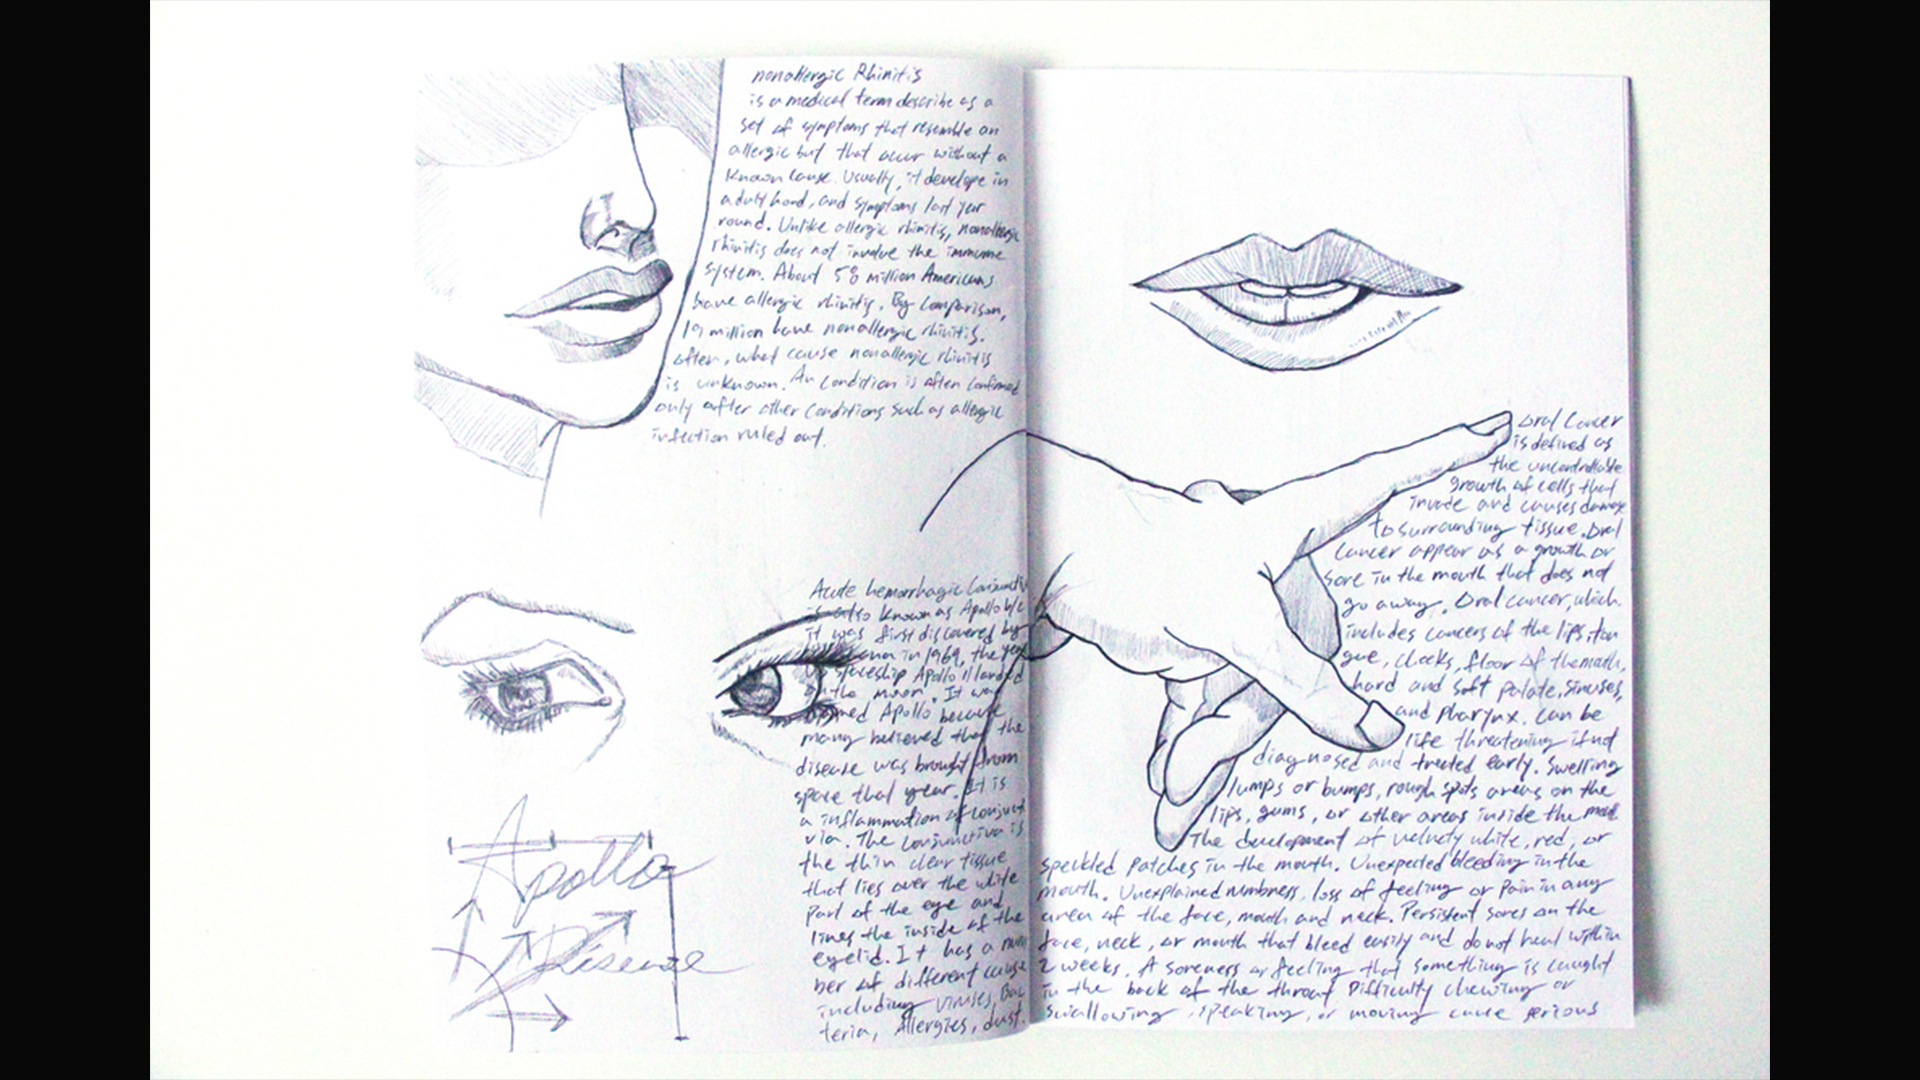 nonallergic Rhinitis
is a medical term describe as a
set of symptoms that resemble an
allergic but that occur without a
known cause. Usually, it develope in
adulthood, and symptoms last year
round. Unlike allergic rhinitis, nonallergic
rhinitis does not involve the immune
system. About 58 million Americans
have allergic rhinitis. By comparison,
19 million have nonallergic rhinitis.
often, what cause nonallergic rhinitis
is unknown. An condition is often confirmed
only after other conditions such as allergic
infection ruled out.
Acute hemorrhagic Conjuncti
is also known as Apollo b/c
it was first discovered by
in 1969, the year
US spaceship Apollo 11 landed
on the moon". It was
named Apollo" because
many believed that the
disease was brought from
space that year. It is
a inflammation of conjunct
via. The conjunctiva is
the thin clear tissue
that lies over the white
part of the eye and
lines the inside of the
eyelid. It has a num
ber of different cause
including viruses, Bac
teria, Allergies, dust.
Apollo
Disease
Oral Cancer
is defined as
the uncontrollable
growth of cells that
invade and causes damage
to surrounding tissue. Oral
Cancer appear as a growth or
sore in the mouth that does not
go away. Oral cancer, which
includes cancers of the lips, ton
gue, cheeks, floor of the mouth,
hard and soft palate, sinuses,
and pharynx. can be
life threatening if not
diagnosed and treated early. Swelling
lumps or bumps, rough spots areas on the
lips, gums, or other areas inside the mouth
The development of velvety white, red, or
speckled patches in the mouth. Unexpected bleeding in the
mouth. Unexplained numbness, loss of feeling or pain in any
area of the face, mouth and neck. Persistent sores on the
face, neck, or mouth that bleed easily and do not heal within
2 weeks. A soreness or feeling that something is caught
in the back of the throat Difficulty chewing or
swallowing, speaking, or moving cause serious